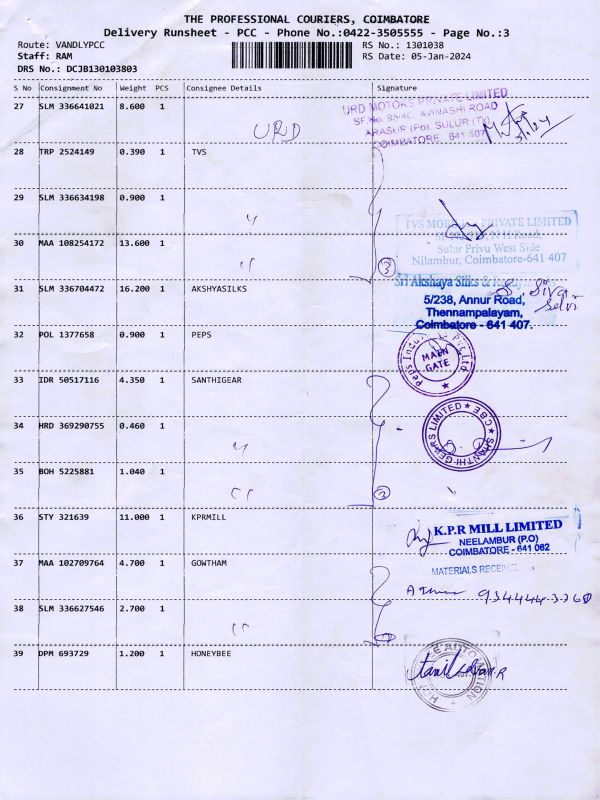 THE PROFESSIONAL COURIERS, COIMBATORE
Delivery Runsheet - PCC - Phone No.:0422-3505555 - Page No.:3
Route: VANDLYPCC
RS No.: 1301038
Staff: RAM
RS Date: 05-Jan-2024
DRS No.: DCJB130103803
S No Consignment No Weight PCS Consignee Details Signature
27 SLM 336641021 8.600 1 URD
URD MOTORS PRIVATE LIMITED
SF.No. 95/4C, AVINASHI ROAD
ARASUR (Po), SULUR (TK)
COIMBATORE - 641 407
28 TRP 2524149 0.390 1 TVS
29 SLM 336634198 0.900 1 "
TVS MOBILITY PRIVATE LIMITED
Sulur Privu West Side
Nilambur, Coimbatore-641 407
30 MAA 108254172 13.600 1 "
3
31 SLM 336704472 16.200 1 AKSHYASILKS
Sri Akshaya Silks &
5/238, Annur Road,
Thennampalayam,
Coimbatore - 641 407.
32 POL 1377658 0.900 1 PEPS
MAIN
GATE
33 IDR 50517116 4.350 1 SANTHIGEAR
SHANTHI GEARS LIMITED ★ CBE ★
34 HRD 369290755 0.460 1 "
35 BOH 5225881 1.040 1 "
2
36 STY 321639 11.000 1 KPRMILL
K.P.R MILL LIMITED
NEELAMBUR (P.O)
COIMBATORE - 641 062
37 MAA 102709764 4.700 1 GOWTHAM
MATERIALS RECEIVED
38 SLM 336627546 2.700 1 "
39 DPM 693729 1.200 1 HONEYBEE